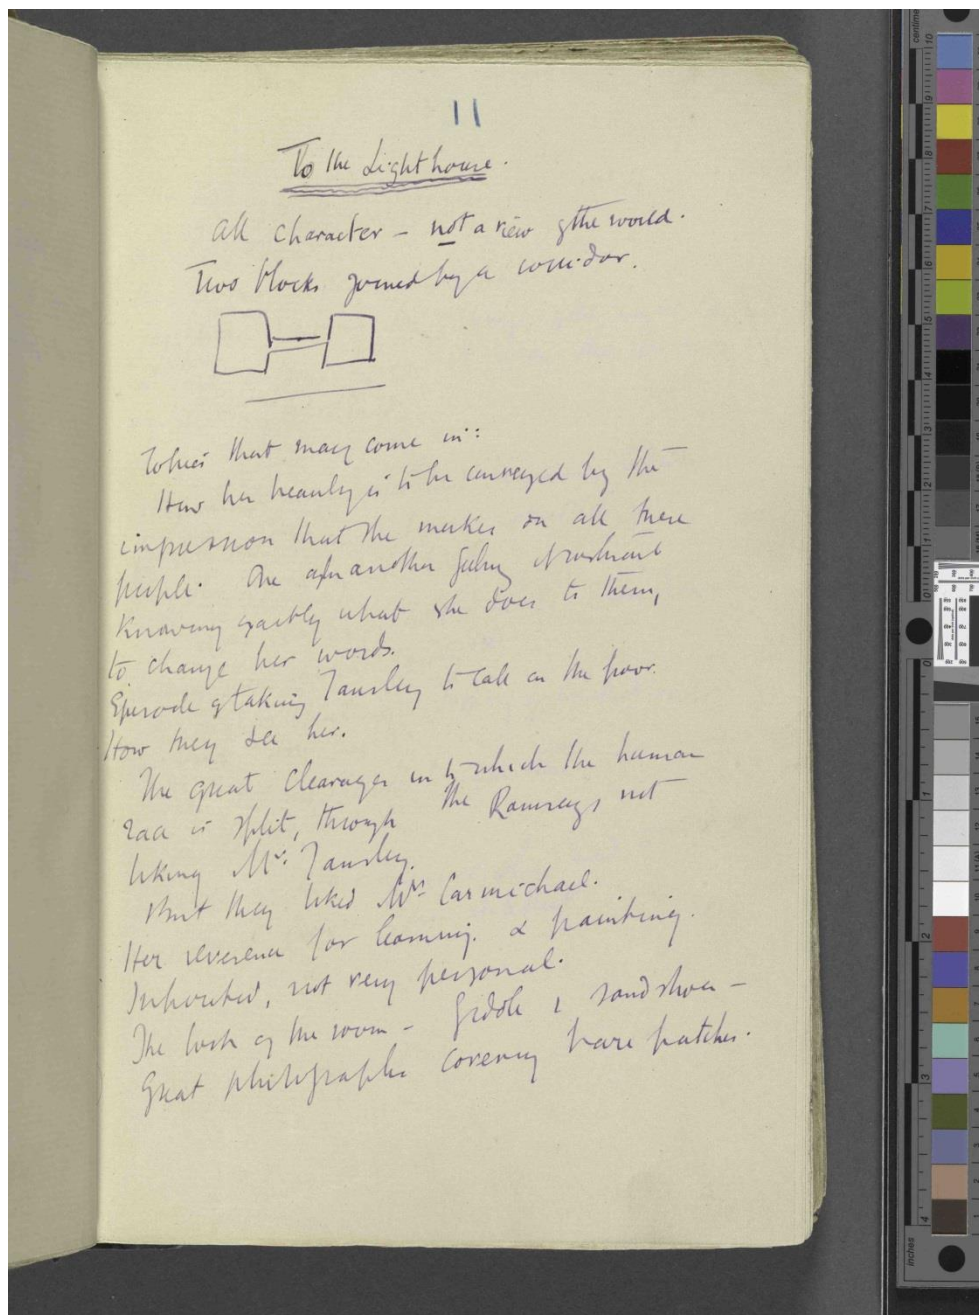 11
To the Lighthouse.
All character - not a view of the world.
Two blocks joined by a corridor.
Topics that may come in:
How her beauty is to be conveyed by the
impression that she makes on all these
people. One after another feeling it without
knowing exactly what she does to them,
to change her words.
Episode of taking Tansley to call on the poor.
How they see her.
The great cleavages into which the human
race is split, through the Ramsays not
liking Mr. Tansley.
But they liked Mr Carmichael.
Her reverence for learning & painting.
Inhibited, not very personal.
The look of the room - fiddle & sandshoes -
Great photographs covering bare patches.
centime
inches